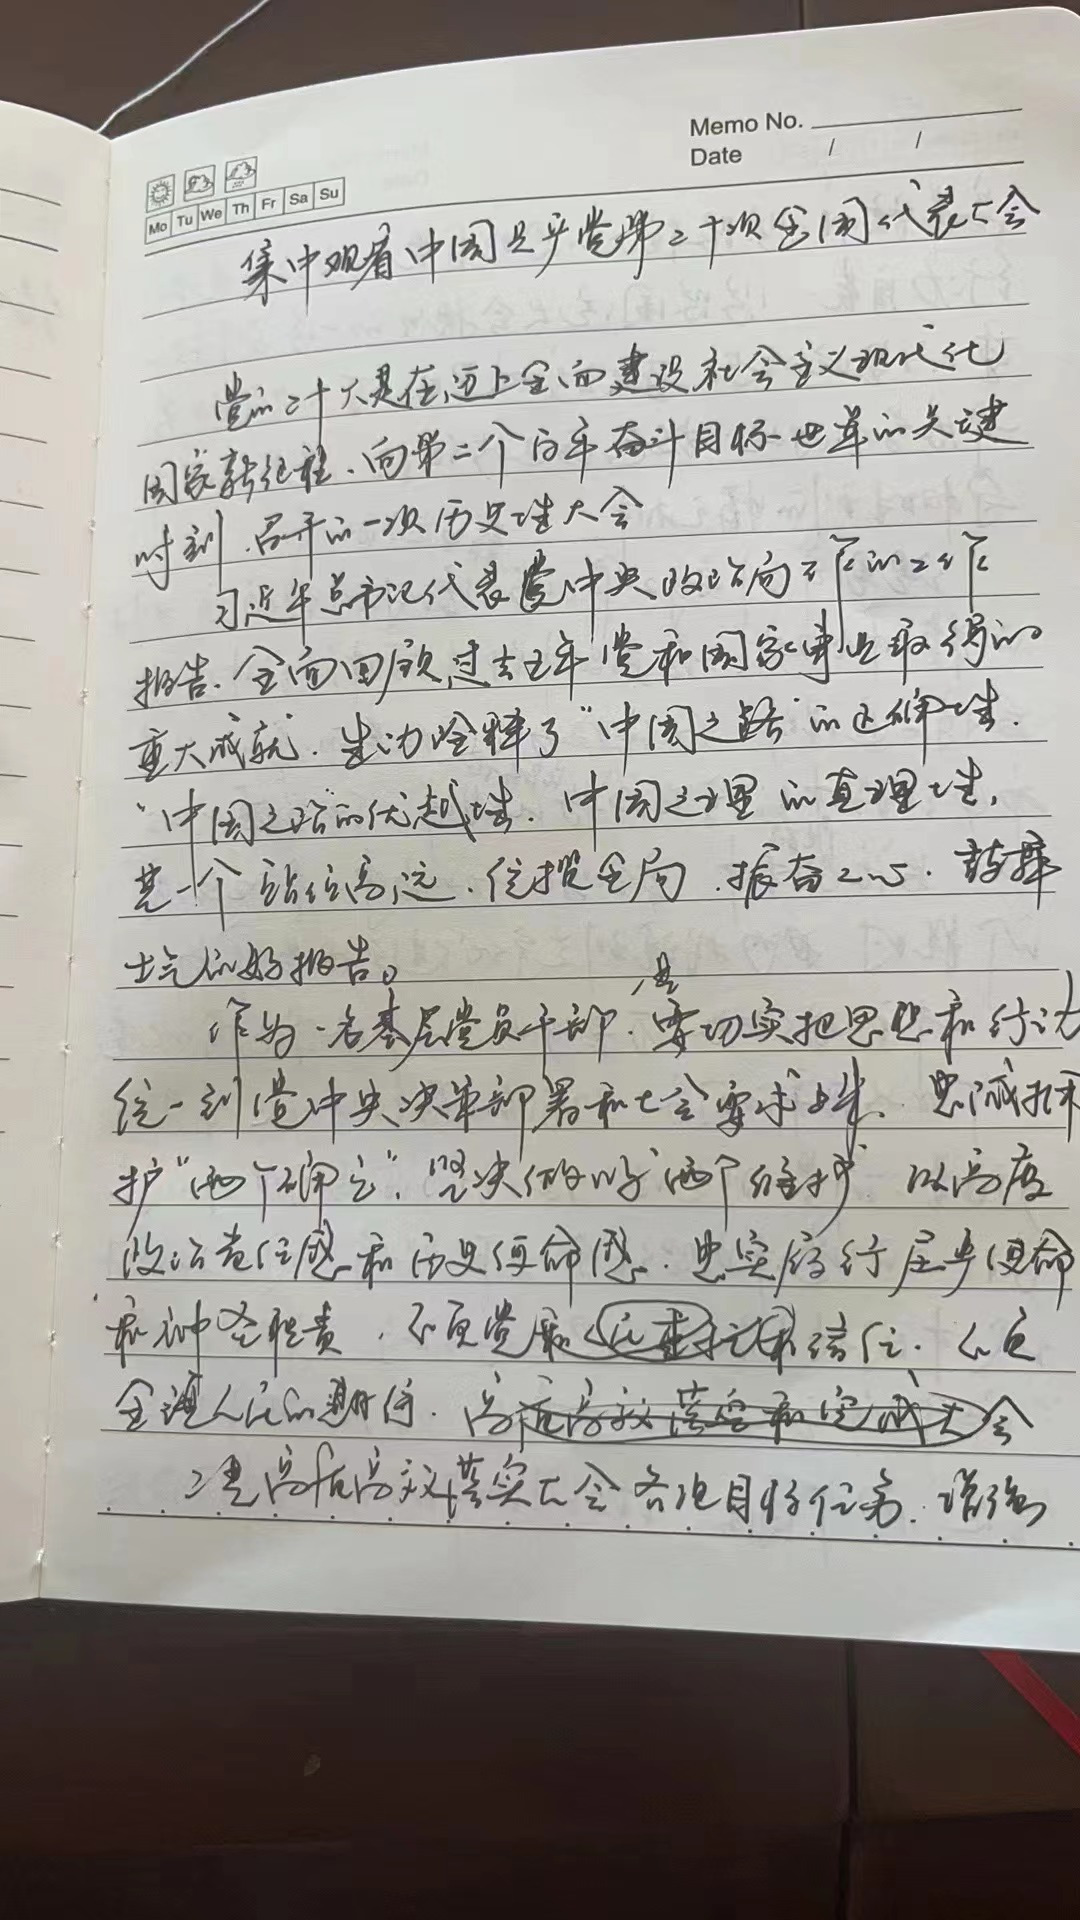 Memo No.
Date / /
Mo Tu We Th Fr Sa Su
集中观看中国共产党第二十次全国代表大会
党的二十大是在迈上全面建设社会主义现代化
国家新征程、向第二个百年奋斗目标进军的关键
时刻、召开的一次历史性大会
习近平总书记代表党中央政治局作的工作
报告、全面回顾过去五年党和国家事业取得的
重大成就、生动诠释了“中国之路”的正确性、
“中国之治的优越性、中国之理的真理性、
是一个站位高远、统揽全局、振奋人心、鼓舞
士气的好报告。
作为一名基层党员干部、是要切实把思想和行动
统一到党中央决策部署和大会要求上来、忠诚拥
护“两个确立”、坚决做好“两个维护”、以高度
政治责任感和历史使命感、忠实履行届手使命
和神圣职责、不负党和信任、不负
全镇人民的期待、高质高效落实和完成大会
二是高质高效落实大会各项目标任务、增强